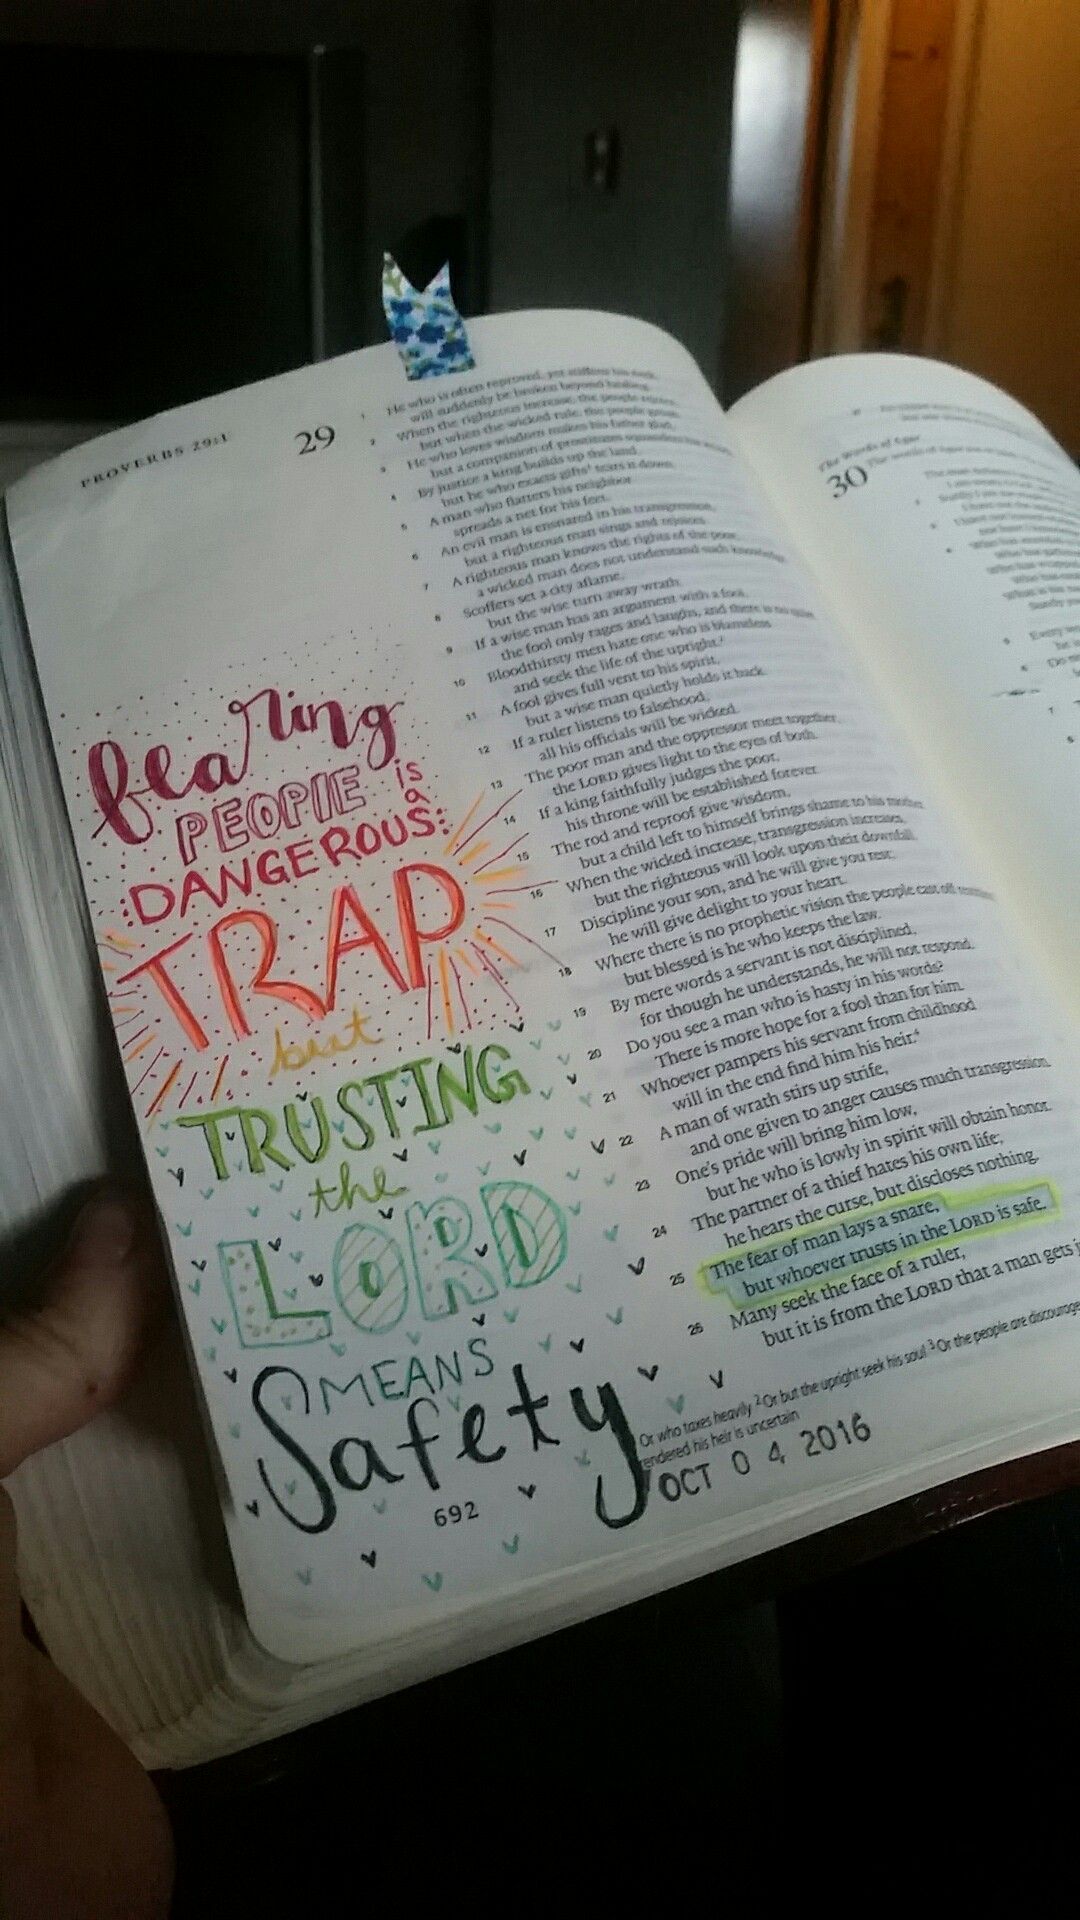 PROVERBS 29:1
29
1 He who is often reproved, yet stiffens his neck,
will suddenly be broken beyond healing.
2 When the righteous increase, the people rejoice,
but when the wicked rule, the people groan.
3 He who loves wisdom makes his father glad,
but a companion of prostitutes squanders his wealth.
4 By justice a king builds up the land,
but he who exacts gifts¹ tears it down.
5 A man who flatters his neighbor
spreads a net for his feet.
6 An evil man is ensnared in his transgression,
but a righteous man sings and rejoices.
7 A righteous man knows the rights of the poor;
a wicked man does not understand such knowledge.
8 Scoffers set a city aflame,
but the wise turn away wrath.
9 If a wise man has an argument with a fool,
the fool only rages and laughs, and there is no quiet.
10 Bloodthirsty men hate one who is blameless
and seek the life of the upright.²
11 A fool gives full vent to his spirit,
but a wise man quietly holds it back.
12 If a ruler listens to falsehood,
all his officials will be wicked.
13 The poor man and the oppressor meet together;
the LORD gives light to the eyes of both.
14 If a king faithfully judges the poor,
his throne will be established forever.
15 The rod and reproof give wisdom,
but a child left to himself brings shame to his mother.
16 When the wicked increase, transgression increases,
but the righteous will look upon their downfall.
17 Discipline your son, and he will give you rest;
he will give delight to your heart.
18 Where there is no prophetic vision the people cast off restraint,
but blessed is he who keeps the law.
19 By mere words a servant is not disciplined,
for though he understands, he will not respond.
20 Do you see a man who is hasty in his words?
There is more hope for a fool than for him.
21 Whoever pampers his servant from childhood
will in the end find him his heir.⁴
22 A man of wrath stirs up strife,
and one given to anger causes much transgression.
23 One's pride will bring him low,
but he who is lowly in spirit will obtain honor.
24 The partner of a thief hates his own life;
he hears the curse, but discloses nothing.
25 The fear of man lays a snare,
but whoever trusts in the LORD is safe.
26 Many seek the face of a ruler,
but it is from the LORD that a man gets
Or who taxes heavily ² Or but the upright seek his soul ³ Or the people are discouraged
rendered his heir is uncertain
OCT 04 2016
692
fearing
PEOPlE is
a
DANGEROUS
TRAP
but
TRUSTING
the
LORD
MEANS
Safety
The Words of Agur
30